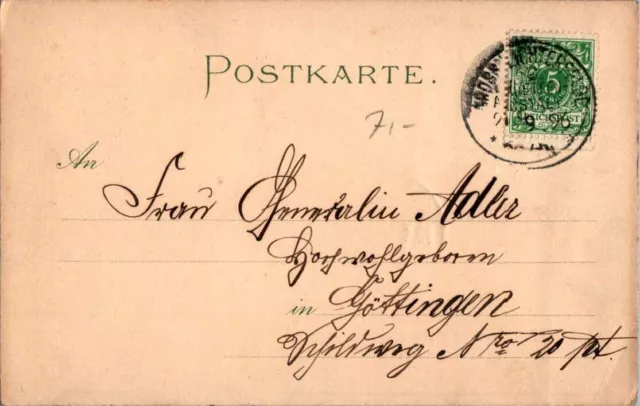 POSTKARTE.
5
REICHSPOST
9 96
7,-
An
Frau Generalin Adler
Hochwohlgeboren
in Göttingen
Schildweg Nro 20 pt.